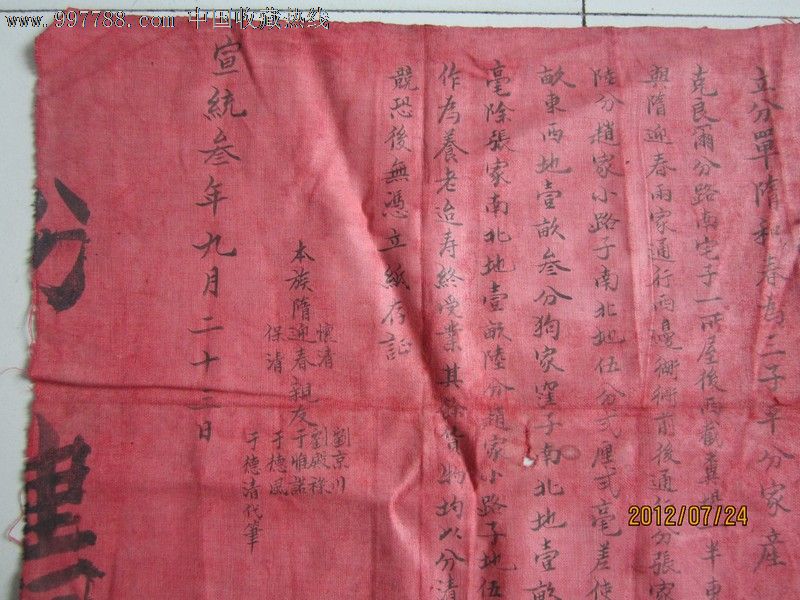 www.997788.com 中国收藏热线
立分單隋和春為二子平分家產
克良爾分路南宅子一所屋後西截糞場半東
與隋迎春兩家通行西邊衚衕前後通行分張家
陸分趙家小路子南北地伍分弍厘弍毫差使
畝東西地壹畝叁分狗家窪子南北地壹畝
毫除張家南北地壹畝陸分趙家小路子地伍
作為養老迨寿終受業其餘貨物均以分清
競恐後無憑立紙存証
本族隋迎春 懷清 保清
親友 劉京川 劉殿祿 于惟諾 于德風
于德清代筆
宣統叁年九月二十三日
分單
2012/07/24